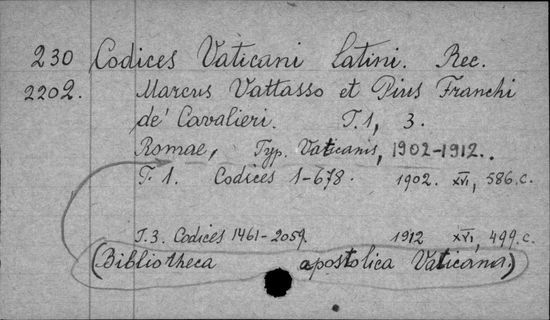 230 Codices Vaticani latini. Rec.
2202. Marcus Vattasso et Pius Franchi
de' Cavalieri. T.1, 3.
Romae, Typ. Vaticanis, 1902-1912.
T. 1. Codices 1-678. 1902. XVI, 586.c.
T.3. Codices 1461-2059. 1912 XVI, 499.c.
(Bibliotheca apostolica Vaticana.)